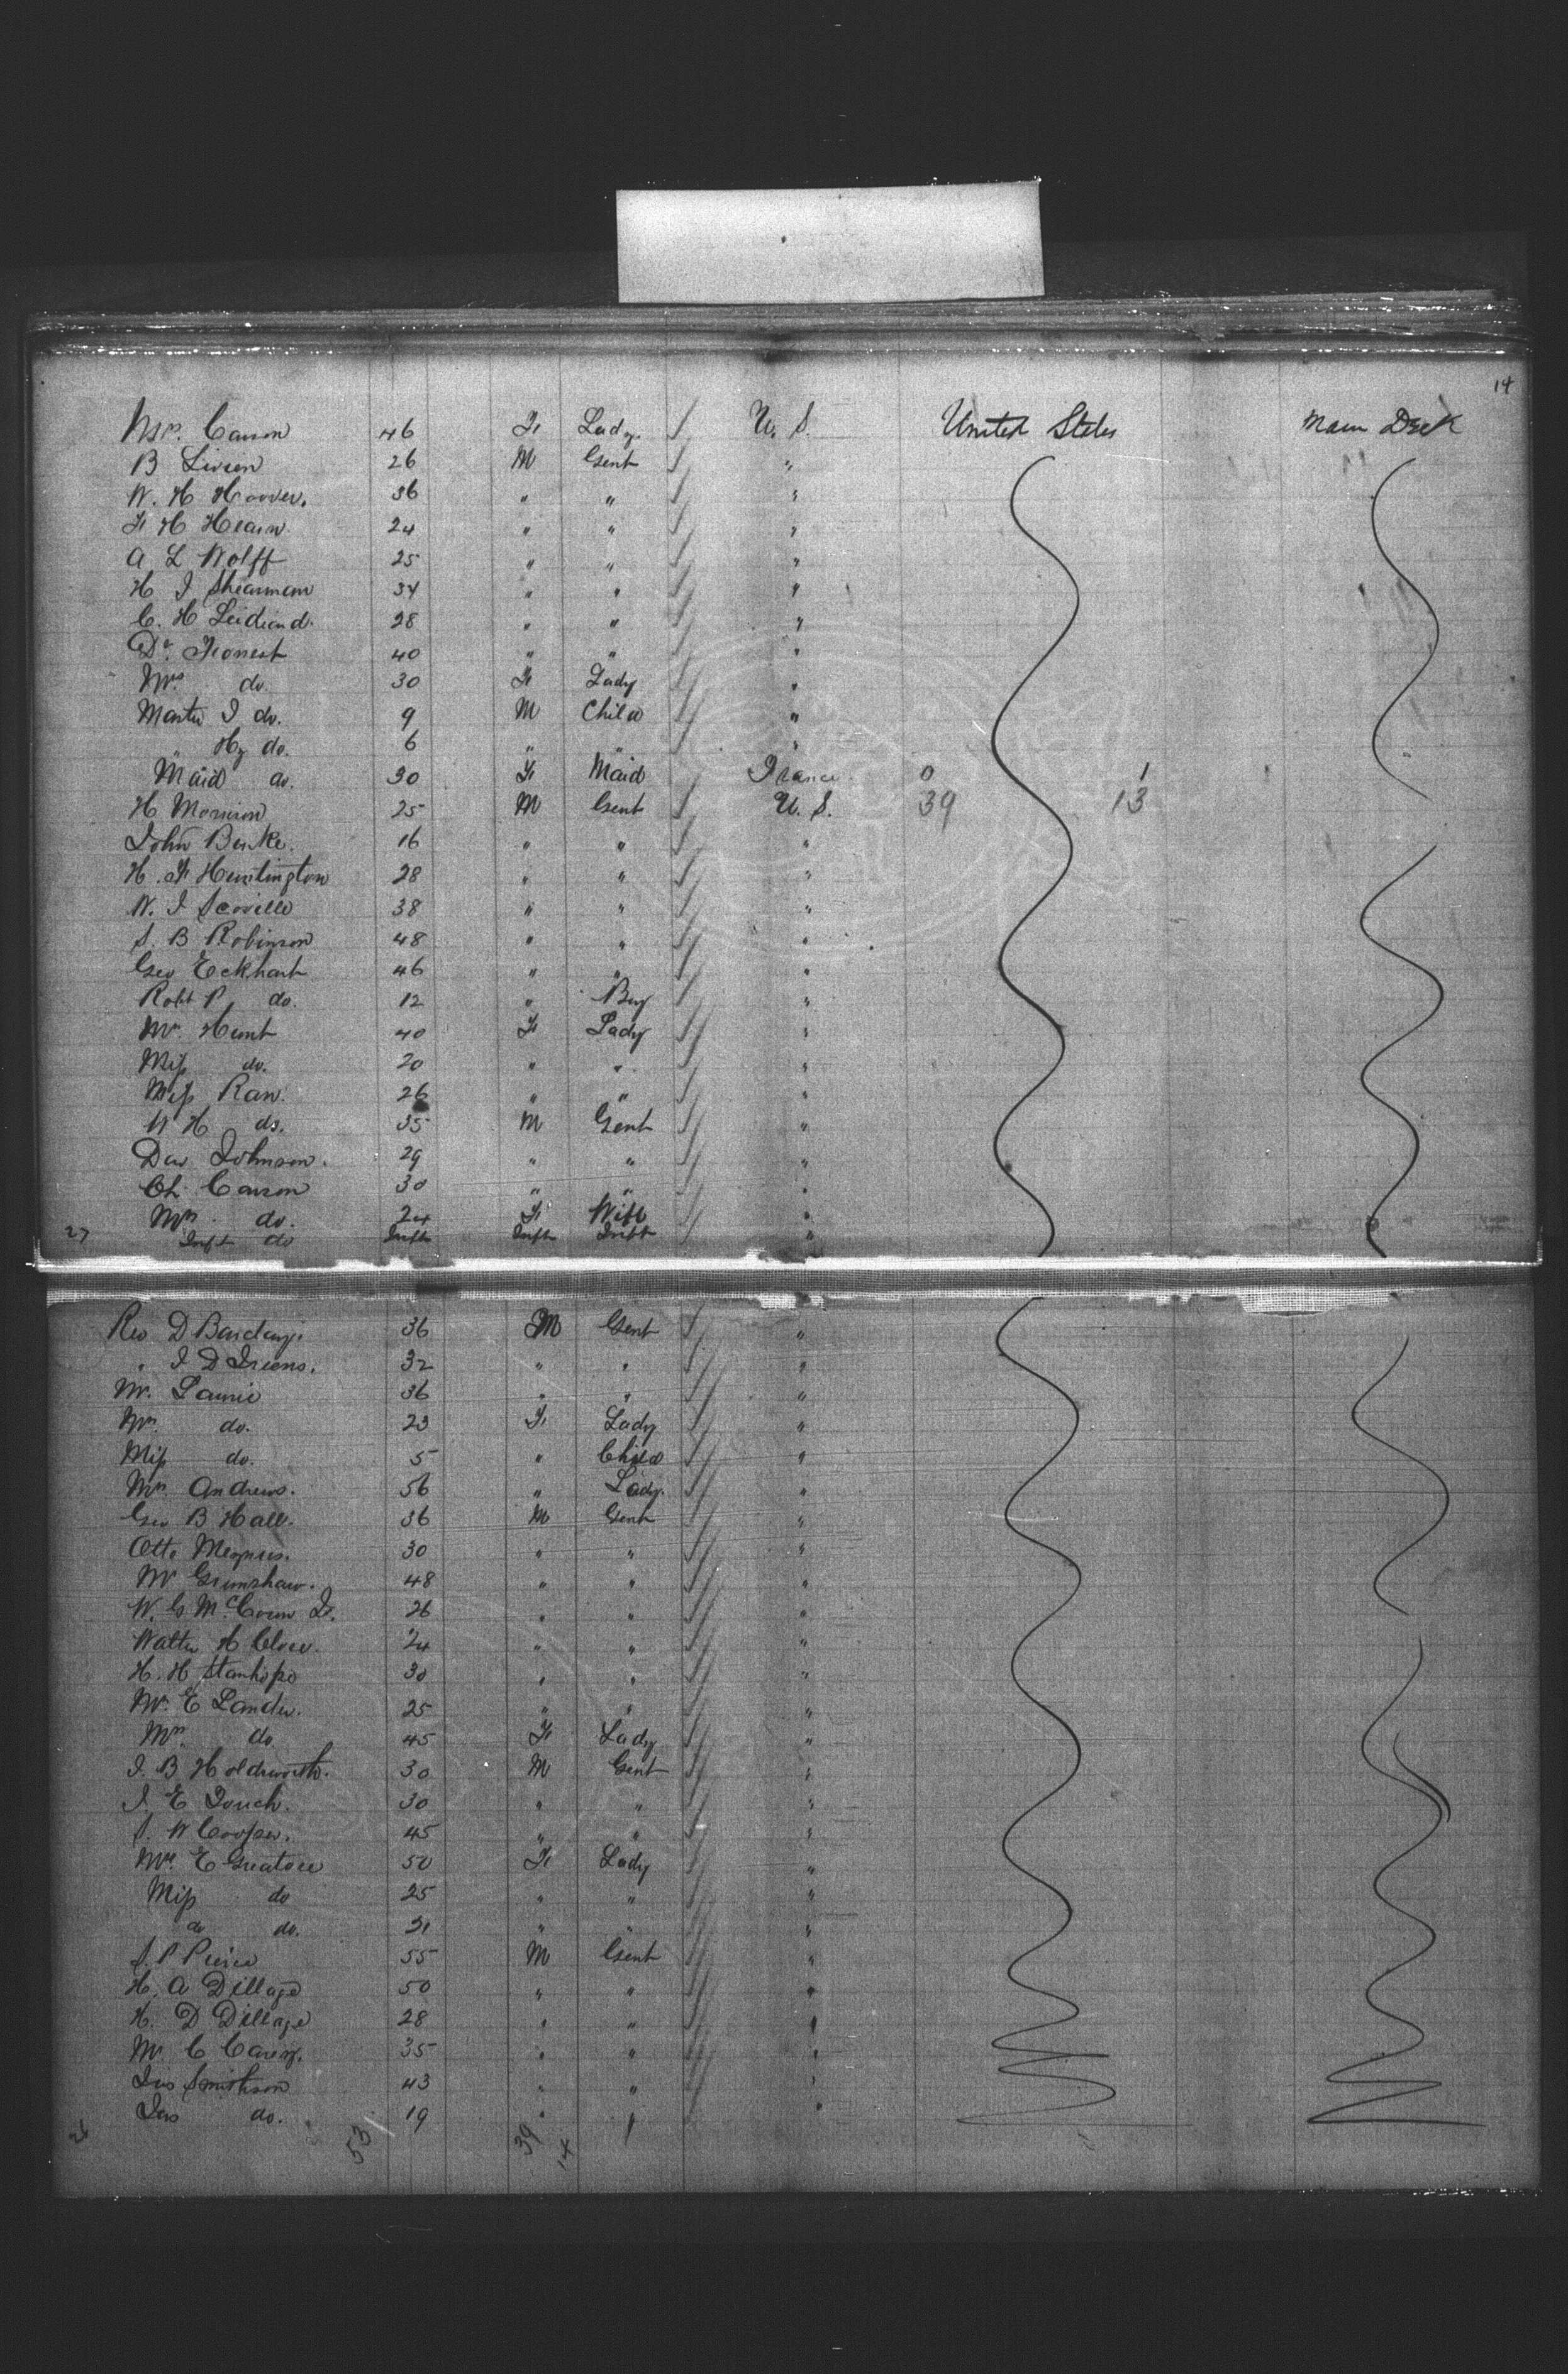 14
Mrs. Carson 46 F. Lady. U. S. United States Main Deck
B Livien 26 M Gent "
W. H Hoover. 36 " " "
F H Hearn 24 " " "
A L Wolff 25 " " "
H J Shearman 34 " " "
C. H 28 " " "
Dr. Forrest 40 " " "
Mrs do. 30 F. Lady "
Master J do. 9 M Child "
" Hy do. 6 " " "
Maid do. 30 F. Maid France 0 1
H Morrison 25 M Gent U. S. 39 13
John Burke. 16 " " "
H. F. Huntington 28 " " "
W. J Scoville 38 " " "
S. B Robinson 48 " " "
Geo Eckhart 46 " " "
Robt P do. 12 " Boy "
Mrs. Hunt 40 F. Lady "
Miss do. 20 " " "
Miss Raw. 26 " " "
W H do. 35 M Gent "
Dav Johnson. 29 " " "
Ch. Carson 30 " " "
Mrs. do. 24 F. Wife "
27 Inft do Inft Inft Inft "
Rev D 36 M Gent "
" J D 32 " " "
Mr. Laurie 36 " " "
Mrs. do. 23 F. Lady "
Miss do. 5 " Child "
Mrs. Andrews. 56 " Lady. "
Geo B Hall. 36 M Gent "
Otto 30 " " "
Mr Grimshaw. 48 " " "
W. G McCown Jr. 26 " " "
Walter H 24 " " "
H. H Stanhope 30 " " "
Mr. E Lander. 25 " " "
Mrs. do. 45 F. Lady "
J. B Holdsworth. 30 M Gent "
J E 30 " " "
S. W Cooper. 45 " " "
Mrs. E Greatore 50 F. Lady "
Miss do 25 " " "
do do. 21 " " "
S. P Peirce 55 M Gent "
H. A Dillage 50 " " "
H. D Dillage 28 " " "
Mr. C Carey. 35 " " "
Jas Smithson 43 " " "
Jas do. 19 " " "
26 53 39 14